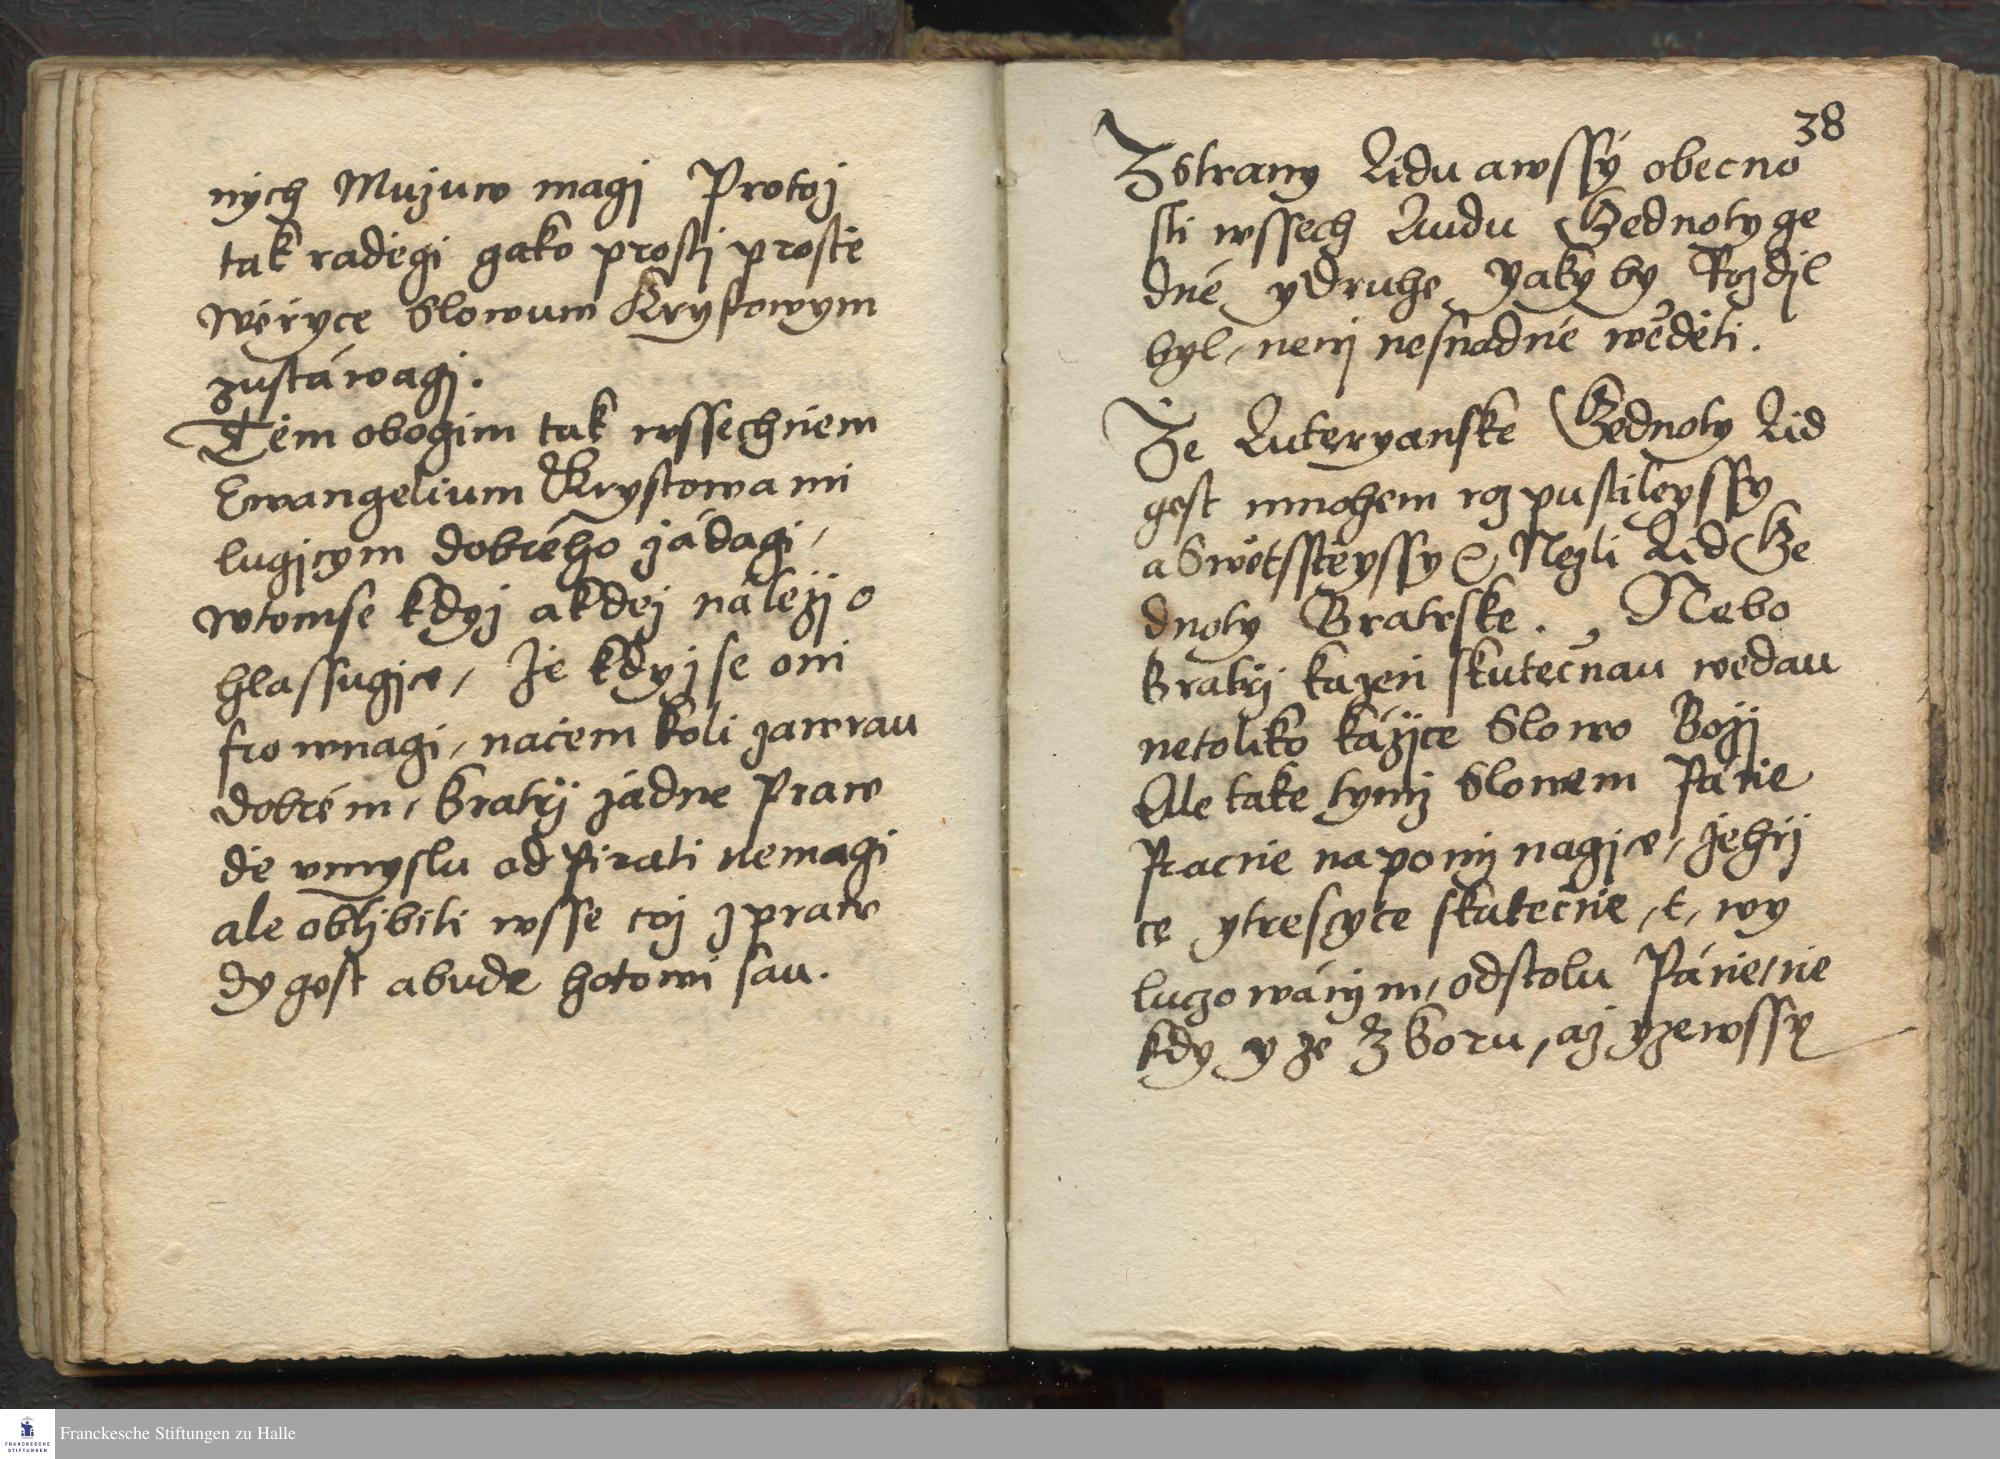 nych Mužuw magj Protož
tak radegi gako prostj prostie
wěřyce Slowum Krystowym
zustáwagj.
Tém obogim tak wssechniem
Ewangelium Krystowa mi
lugjcym dobrého žádagi,
wtomse když akdež náležj o
hlassugjce, Že kdyžse oni
srownagi, načem koli zawrau
dobrém, Bratřj žádne Praw
de vmyslu odpirati nemagi
ale obljbiti wsse což zpraw
dy gest abude hotowi sau.
38
Z Strany Lidu awssý obecno
sti wssech Luudu Gednoty ge
dné y druhe Yaky by Rozdjl
byl, nenj nesnadné wěděti.
Že Luteryanske Gednoty Lid
gest mnohem rozpustileyssy
a Swětsstěyssy Nežli Lid Ge
dnoty Bratrske. Nebo
Bratřj kazen skutečnau wedau
netoliko kážjce Slowo Božj
Ale take tymž Slowem Pánie
ptacnie napomjnagjce, žehřj
ce ytrescyce skutečnie, t, wy
lugowáným, odstolu Pánie, nie
kdy y ze Zboru, až yzewssy
Franckesche Stiftungen zu Halle
FRANCKESCHE
STIFTUNGEN